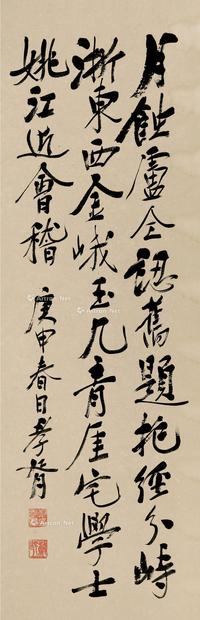 月蝕盧仝認舊題抱經分峙
浙東西金峨玉几青厓宅學士
姚江近會稽
庚申春日孝胥